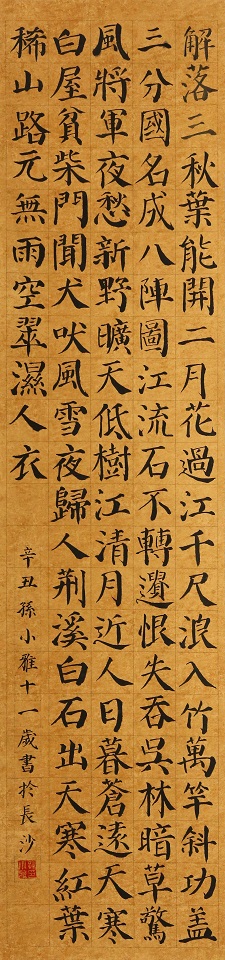 解落三秋葉能開二月花過江千尺浪入竹萬竿斜功盖
三分國名成八陣圖江流石不轉遺恨失吞吳林暗草驚
風將軍夜愁新野曠天低樹江清月近人日暮蒼遠天寒
白屋貧柴門聞犬吠風雪夜歸人荆溪白石出天寒紅葉
稀山路元無雨空翠濕人衣
辛丑孫小雅十一歲書扵長沙